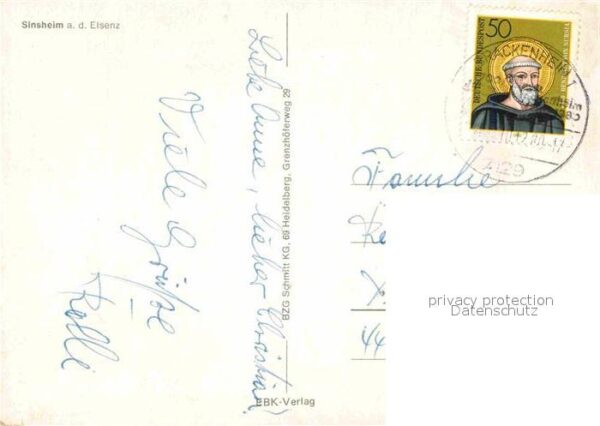 Sinsheim a. d. Elsenz
Liebe Anne, lieber Christian!
Viele Grüße
BZG Schmitt KG, 69 Heidelberg, Grenzhöferweg 29
BK-Verlag
50
DEUTSCHE BUNDESPOST
Familie
44
privacy protection
Datenschutz